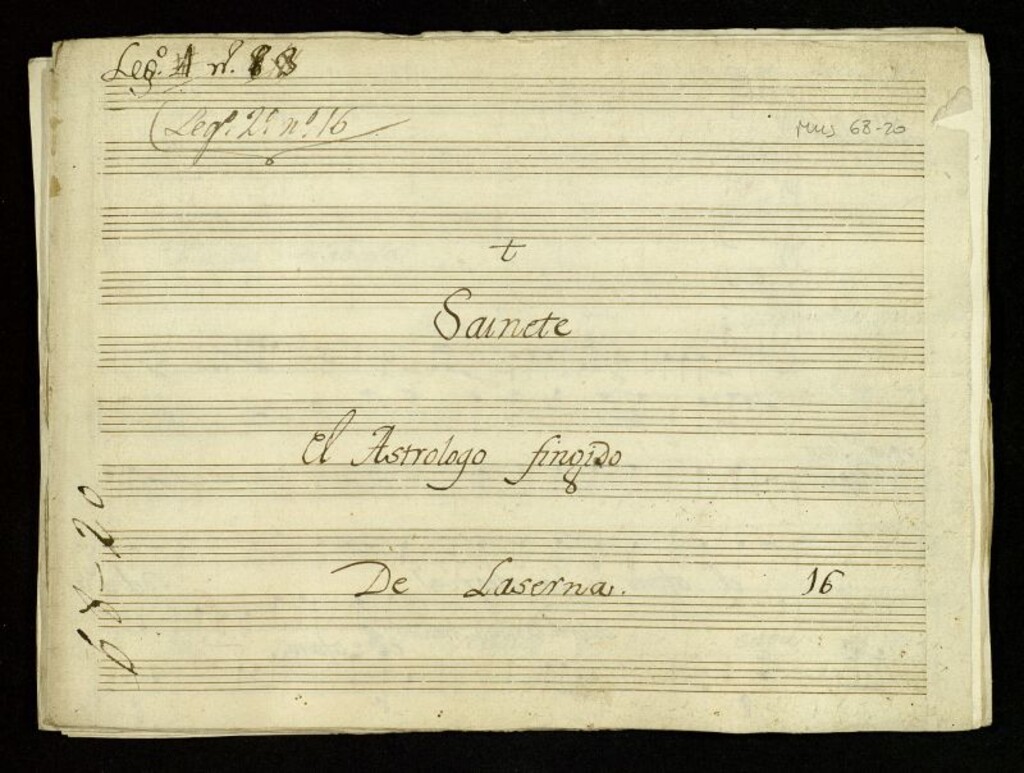 Leg.º 1 n.
Leg.º 2.º n.º 16
Mus 68-20
t
Sainete
El Astrologo fingido
De Laserna. 16
68-20